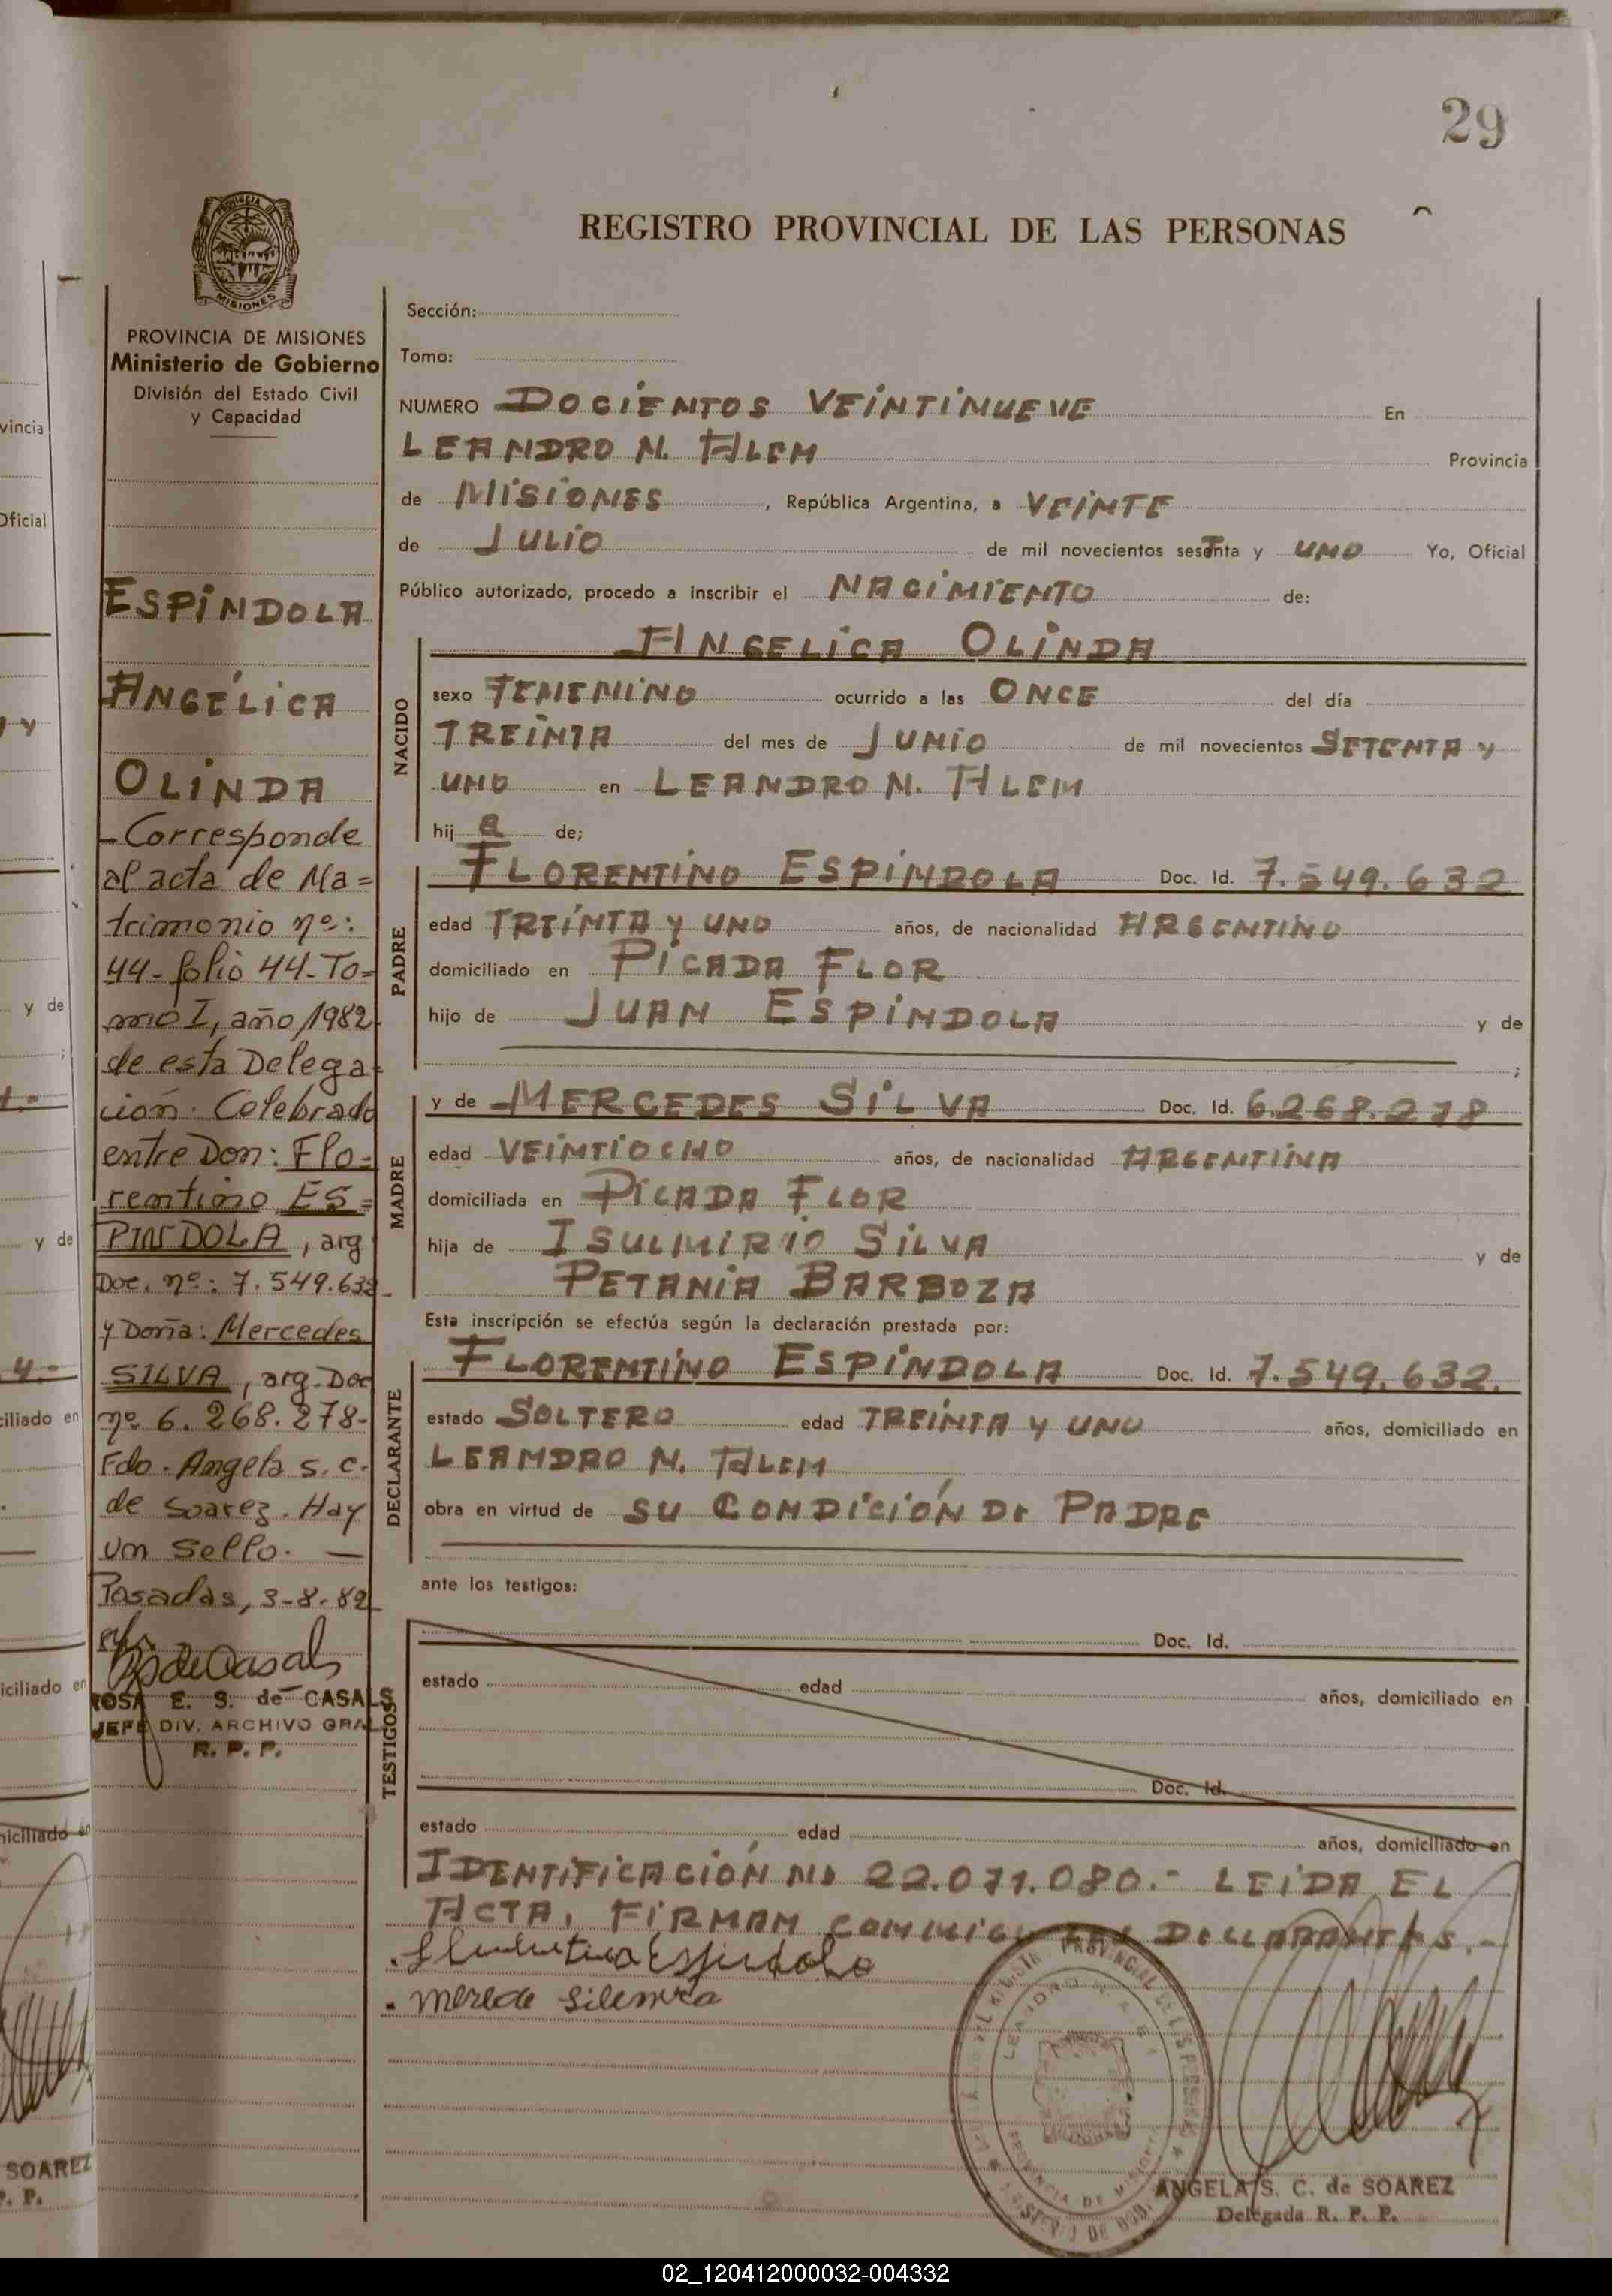 29
REGISTRO PROVINCIAL DE LAS PERSONAS
PROVINCIA DE MISIONES
Ministerio de Gobierno
División del Estado Civil
y Capacidad
ESPÍNDOLA
ANGÉLICA
OLINDA
- Corresponde
al acta de Ma=
trimonio nº:
44- folio 44-To=
mo I, año 1982
de esta Delega-
ción. Celebrado
entre Don: Flo=
rentino ES=
PINDOLA, arg
Doc. nº: 7.549.632
y Doña: Mercedes
SILVA, arg. Doc
nº 6.268.278-
Fdo. Angela S. C.
de Soarez. Hay
un sello. —
Posadas, 3-8-82
ROSA E. S. de CASALS
JEFE DIV. ARCHIVO GRAL
R. P. P.
Sección:
Tomo:
NUMERO DOCIENTOS VEINTINUEVE En
LEANDRO N. ALEM Provincia
de MISIONES, República Argentina, a VEINTE
de JULIO de mil novecientos sesTnta y UNO Yo, Oficial
Público autorizado, procedo a inscribir el NACIMIENTO de:
ANGELICA OLINDA
NACIDO
sexo FEMENINO ocurrido a las ONCE del día
TREINTA del mes de JUNIO de mil novecientos SETENTA y
UNO en LEANDRO N. ALEM
hij a de;
PADRE
FLORENTINO ESPINDOLA Doc. Id. 7.549.632
edad TREINTA y UNO años, de nacionalidad ARGENTINO
domiciliado en PICADA FLOR
hijo de JUAN ESPINDOLA y de
;
MADRE
y de MERCEDES SILVA Doc. Id. 6.268.278
edad VEINTIOCHO años, de nacionalidad ARGENTINA
domiciliada en PICADA FLOR
hija de ISULMIRIO SILVA y de
PETANIA BARBOZA
Esta inscripción se efectúa según la declaración prestada por:
DECLARANTE
FLORENTINO ESPINDOLA Doc. Id. 7.549.632.
estado SOLTERO edad TREINTA y UNO años, domiciliado en
LEANDRO N. ALEM
obra en virtud de SU CONDICIÓN DE PADRE
ante los testigos:
TESTIGOS
Doc. Id.
estado edad años, domiciliado en
Doc. Id.
estado edad años, domiciliado en
IDENTIFICACIÓN Nº 22.071.080.- LEIDA EL
ACTA, FIRMAN CONMIGO LOS DECLARANTES.-
Espindola
merede
LEANDRO N. ALEM
PROVINCIA DE MISIONES
ANGELA S. C. de SOAREZ
Delegada R. P. P.
vincia
Oficial
y de
y de
ciliado en
iciliado en
niciliado en
SOAREZ
P. P.
02_120412000032-004332